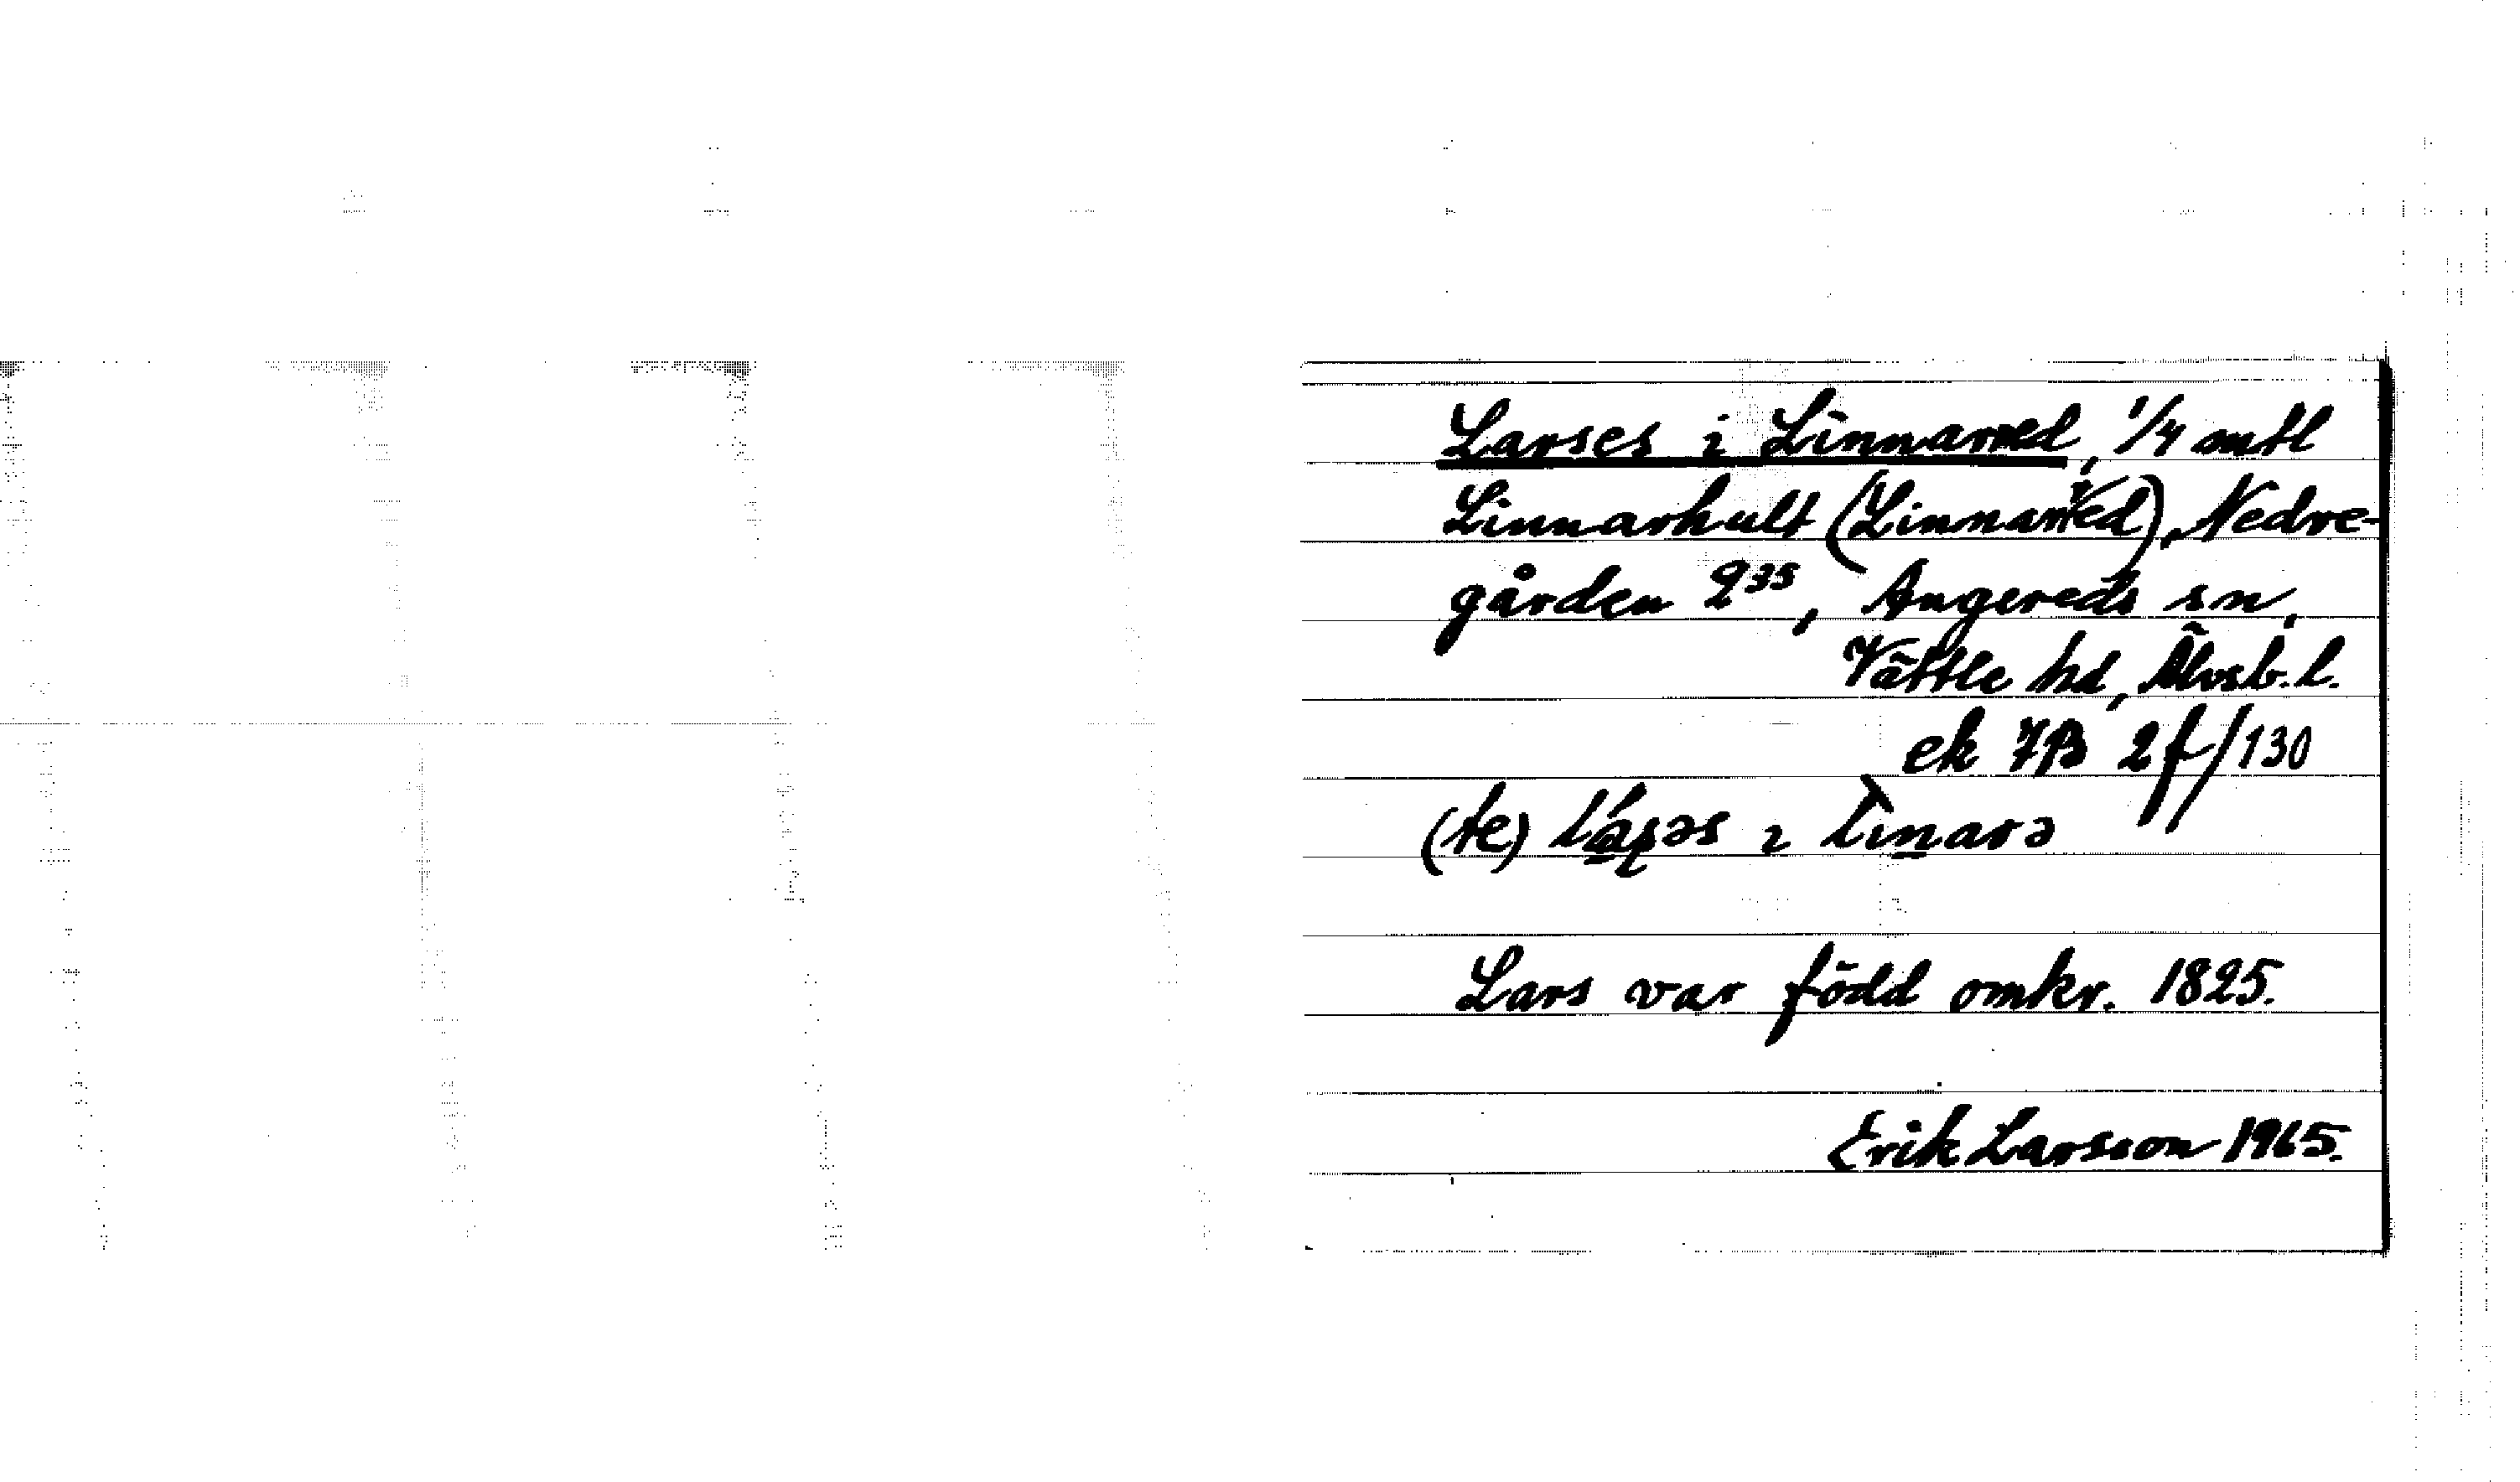 Larses i Linnarred, 1/4 mtl
Linnarhult (Linnarred), Nedre-
gården 2³⁵, Angereds sn,
Vättle hd, Älvsb. l.
ek 7B 2f/130
(te) i
Lars var född omkr. 1825.
Erik Larsson 1965.